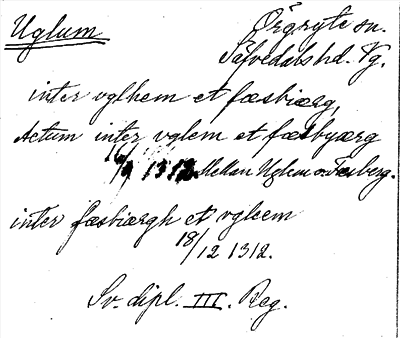 Uglum
Örgryte sn.
Säfvedals hd. Vg.
inter vglhem et fæsbiærg,
Actum inter vglem et fæsbyærg
1312 Mellan Uglem o. Fæsberg.
inter fæsbiærgh et vglem
18/12 1312.
Sv. dipl. III. Reg.